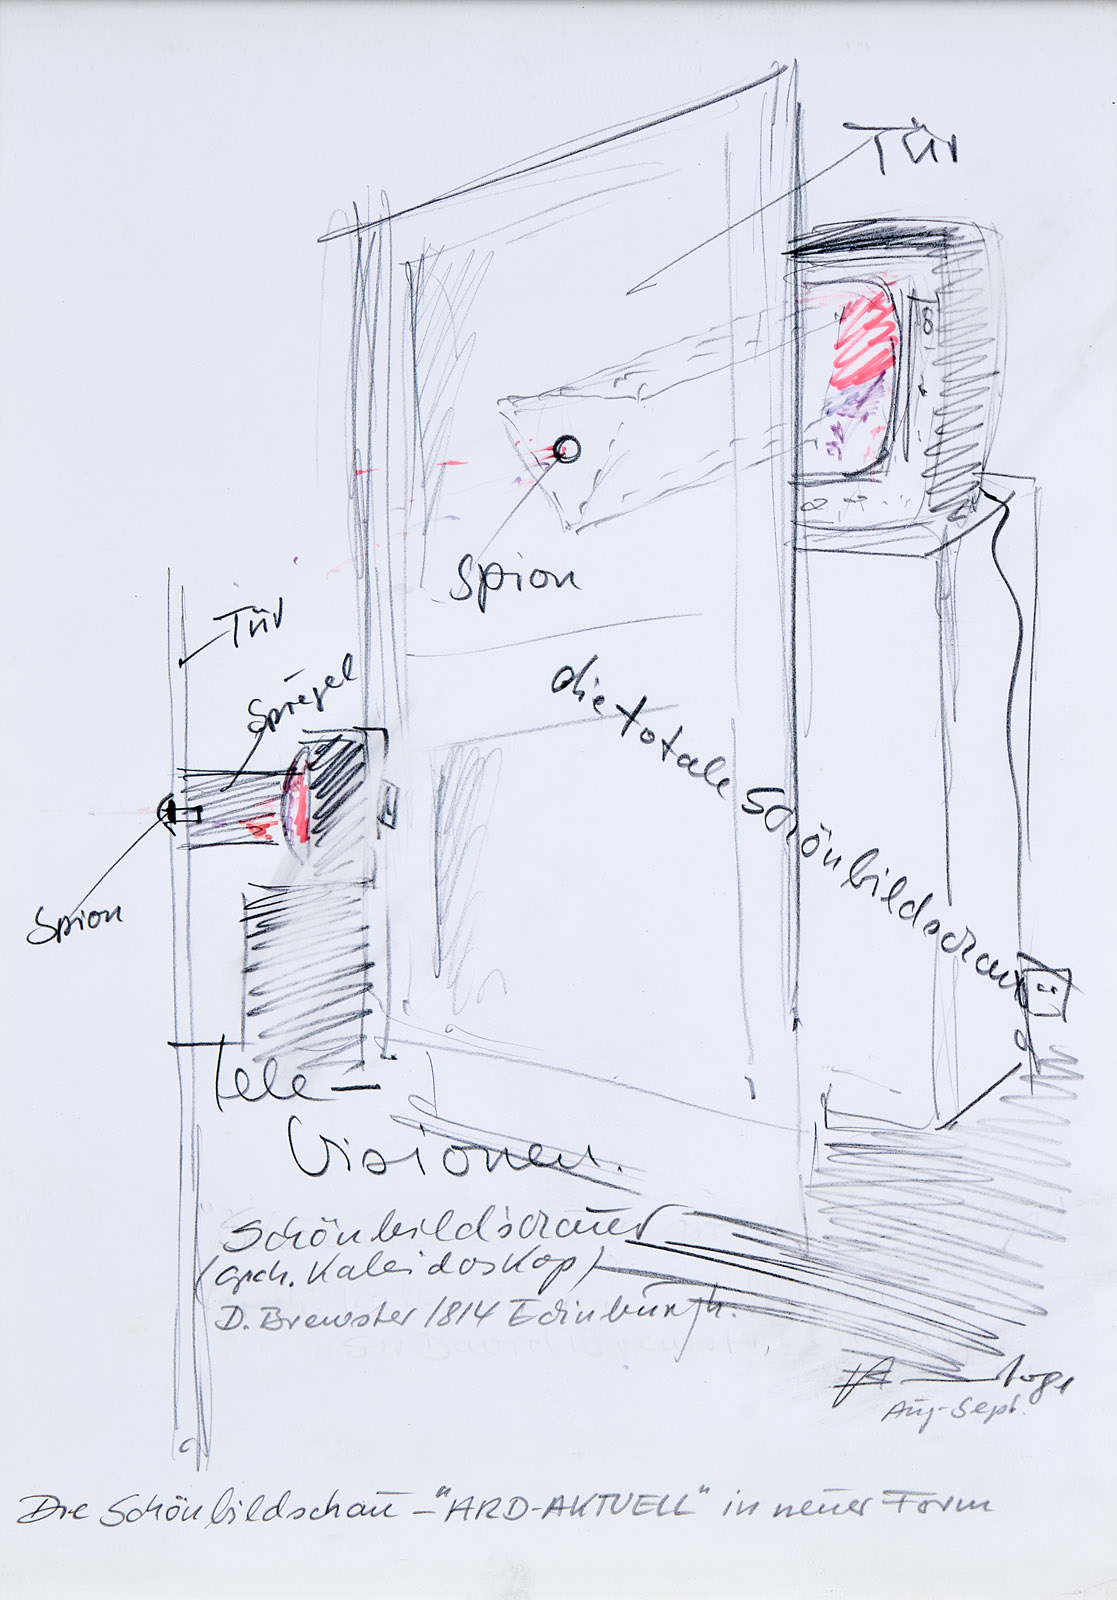 Tür
Spion
Tür
Spiegel
Spion
die totale Schönbildschau
Tele –
Visionen.
Schönbildschauer
(grch. Kaleidoskop)
D. Brewster 1814 Edinburgh.
Aug-Sept.
Die Schönbildschau – "ARD-AKTUELL" in neuer Form